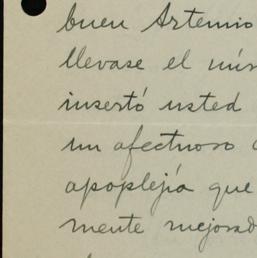 buen Artemio
llevase el
insertó usted
un afectuoso
apoplejía que
mente mejorad